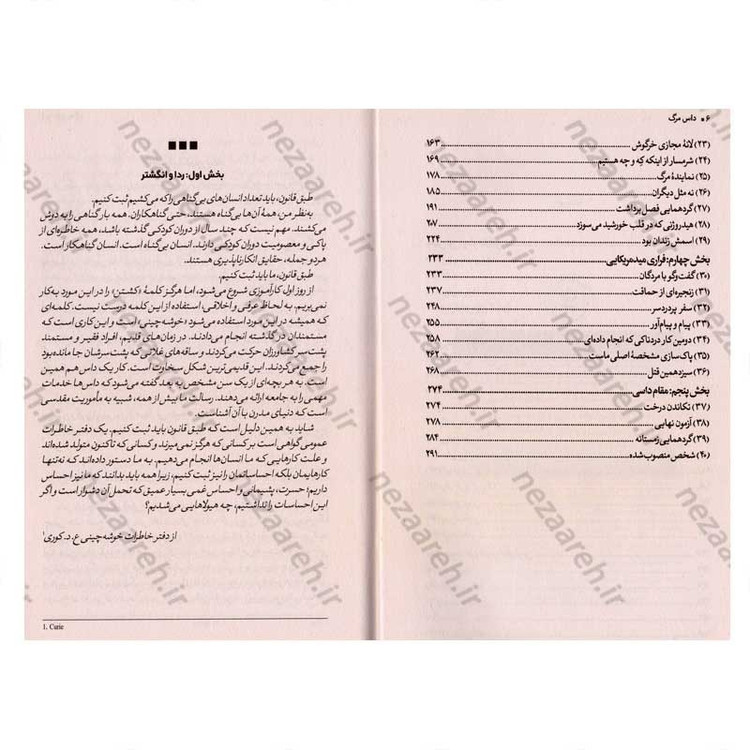 ۶ • داس مرگ
(۲۳) لانهٔ مجازی خرگوش ۱۶۳
(۲۴) شرمسار از اینکه که و چه هستیم ۱۶۹
(۲۵) نمایندهٔ مرگ ۱۷۸
(۲۶) نه مثل دیگران ۱۸۵
(۲۷) گردهمایی فصل برداشت ۱۹۱
(۲۸) هیدروژنی که در قلب خورشید می‌سوزد ۲۰۷
(۲۹) اسمش زندان بود ۲۲۴
بخش چهارم: فراری میدمریکایی ۲۳۳
(۳۰) گفت‌وگو با مردگان ۲۳۳
(۳۱) زنجیره‌ای از حماقت ۲۳۷
(۳۲) سفر پردردسر ۲۴۸
(۳۳) پیام و پیام‌آور ۲۵۵
(۳۴) دومین کار دردناکی که انجام داده‌ای ۲۵۸
(۳۵) پاک‌سازی مشخصهٔ اصلی ماست ۲۶۲
(۳۶) سیزدهمین قتل
بخش پنجم: مقام داسی ۲۷۴
(۳۷) تکاندن درخت ۲۷۴
(۳۸) آزمون نهایی ۲۷۸
(۳۹) گردهمایی زمستانه ۲۸۴
(۴۰) شخص منصوب‌شده ۲۹۱
بخش اول: ردا و انگشتر
طبق قانون، باید تعداد انسان‌های بی‌گناهی را که می‌کشیم ثبت کنیم.
به‌نظر من، همهٔ آن‌ها بی‌گناه هستند، حتی گناهکاران. همه بار گناهی را به دوش
می‌کشند. مهم نیست که چند سال از دوران کودکی گذشته باشد، همه خاطره‌ای از
پاکی و معصومیت دوران کودکی دارند. انسان بی‌گناه است. انسان گناهکار است.
هر دو جمله، حقایق انکارناپذیری هستند.
طبق قانون، ما باید ثبت کنیم.
از روز اول کارآموزی شروع می‌شود، اما هرگز کلمهٔ «کشتن» را در این مورد به‌کار
نمی‌بریم. به لحاظ عرفی و اخلاقی، استفاده از این کلمه درست نیست. کلمه‌ای
که همیشه در این مورد استفاده می‌شود «خوشه‌چینی» است و این کاری است که
مستمندان در گذشته انجام می‌دادند. در زمان‌های قدیم، افراد فقیر و مستمند
پشت سر کشاورزان حرکت می‌کردند و ساقه‌های غلاتی که پشت‌سرشان جا مانده بود
را جمع می‌کردند. این قدیمی‌ترین شکل سخاوت است. کار یک داس هم همین
است. به هر بچه‌ای از یک سن مشخص به بعد گفته می‌شود که داس‌ها خدمات
مهمی را به جامعه ارائه می‌دهند. رسالت ما بیش از همه، شبیه به مأموریت مقدسی
است که دنیای مدرن با آن آشناست.
شاید به همین دلیل است که طبق قانون باید ثبت کنیم. یک دفتر خاطرات
عمومی گواهی است بر کسانی که هرگز نمی‌میرند و کسانی که تاکنون متولد شده‌اند
و علت کارهایی که ما انسان‌ها انجام می‌دهیم. به ما دستور داده‌اند که نه‌تنها
کارهایمان بلکه احساساتمان را نیز ثبت کنیم، زیرا همه باید بدانند که ما نیز احساس
داریم؛ حسرت، پشیمانی و احساس غمی بسیار عمیق که تحمل آن دشوار است و اگر
این احساسات را نداشتیم، چه هیولاهایی می‌شدیم؟
از دفتر خاطرات خوشه‌چینی ع. د. کوری۱
1. Curie
nezaareh.ir